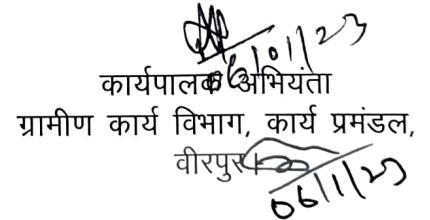 06/01/23
कार्यपालक अभियंता
ग्रामीण कार्य विभाग, कार्य प्रमंडल,
वीरपुर।
06/1/23